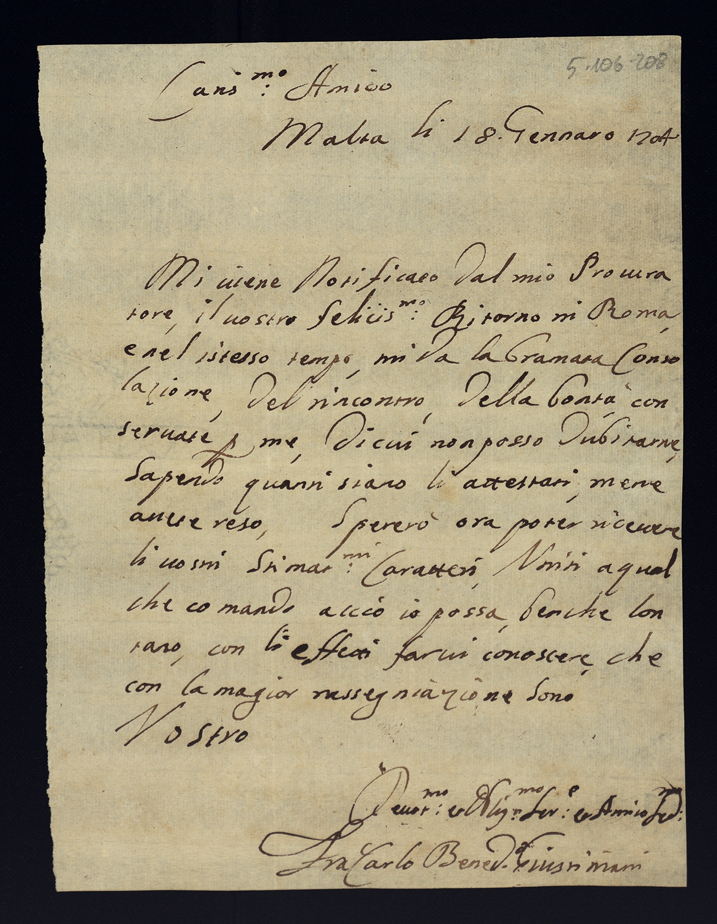 5.106.208
Caris.mo: Amico
Malta li 18. Gennaro 1704
Mi viene Notificato dal mio Procura
tore, il vostro feliciss.mo: Ritorno in Roma,
e nel istesso tempo, mi da la bramata Conso
lazione, del rincontro, della bontà con
servate p me, di cui non posso dubitarne,
Sapendo quanti siano li attestati, mene
avete reso, Spererò ora poter ricevere
li vostri Stimat.mi: Caratteri, Uniti a qual
che comando acciò io possa, benche lon
tano, con li effetti farvi conoscere, che
con la magior rassegniazione sono
Vostro
Devot.mo: et Oblig.mo Ser.e: et Amico
Fra Carlo Bened.o Giustiniani